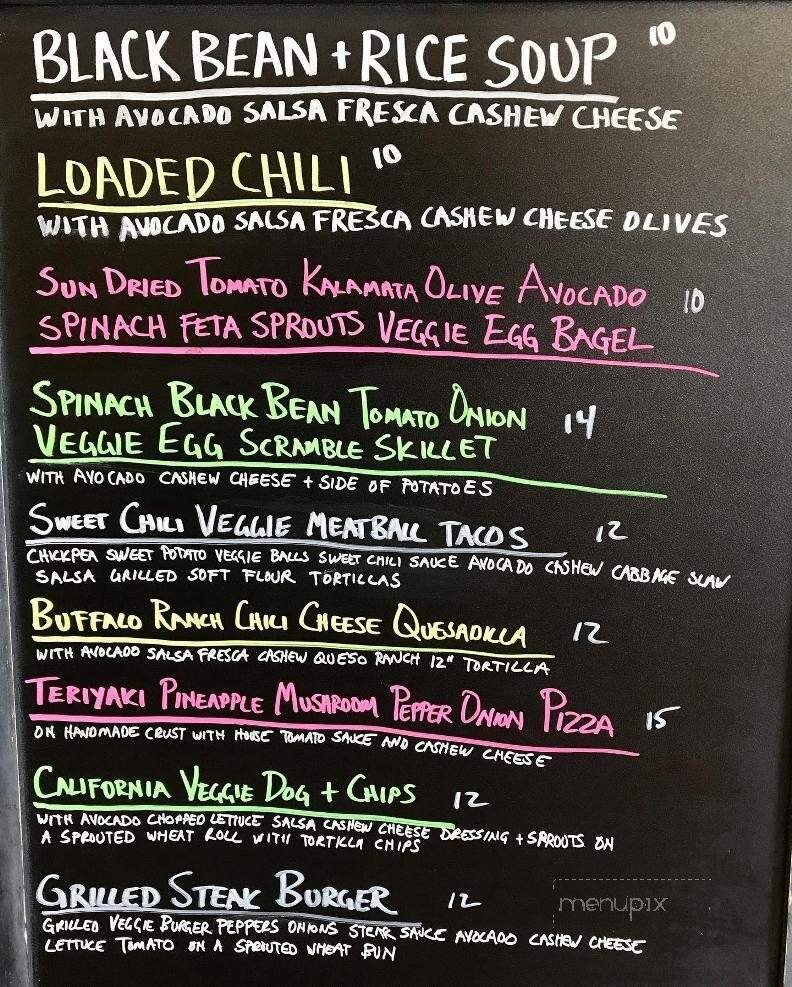 BLACK BEAN + RICE SOUP 10
WITH AVOCADO SALSA FRESCA CASHEW CHEESE
LOADED CHILI 10
WITH AVOCADO SALSA FRESCA CASHEW CHEESE OLIVES
SUN DRIED TOMATO KALAMATA OLIVE AVOCADO 10
SPINACH FETA SPROUTS VEGGIE EGG BAGEL
SPINACH BLACK BEAN TOMATO ONION 14
VEGGIE EGG SCRAMBLE SKILLET
WITH AVOCADO CASHEW CHEESE + SIDE OF POTATOES
SWEET CHILI VEGGIE MEATBALL TACOS 12
CHICKPEA SWEET POTATO VEGGIE BALLS SWEET CHILI SAUCE AVOCADO CASHEW CABBAGE SLAW
SALSA GRILLED SOFT FLOUR TORTILLAS
BUFFALO RANCH CHILI CHEESE QUESADILLA 12
WITH AVOCADO SALSA FRESCA CASHEW QUESO RANCH 12" TORTILLA
TERIYAKI PINEAPPLE MUSHROOM PEPPER ONION PIZZA 15
ON HANDMADE CRUST WITH HOUSE TOMATO SAUCE AND CASHEW CHEESE
CALIFORNIA VEGGIE DOG + CHIPS 12
WITH AVOCADO CHOPPED LETTUCE SALSA CASHEW CHEESE DRESSING + SPROUTS ON
A SPROUTED WHEAT ROLL WITH TORTILLA CHIPS
GRILLED STEAK BURGER 12
GRILLED VEGGIE BURGER PEPPERS ONIONS STEAK SAUCE AVOCADO CASHEW CHEESE
LETTUCE TOMATO ON A SPROUTED WHEAT BUN
menupix